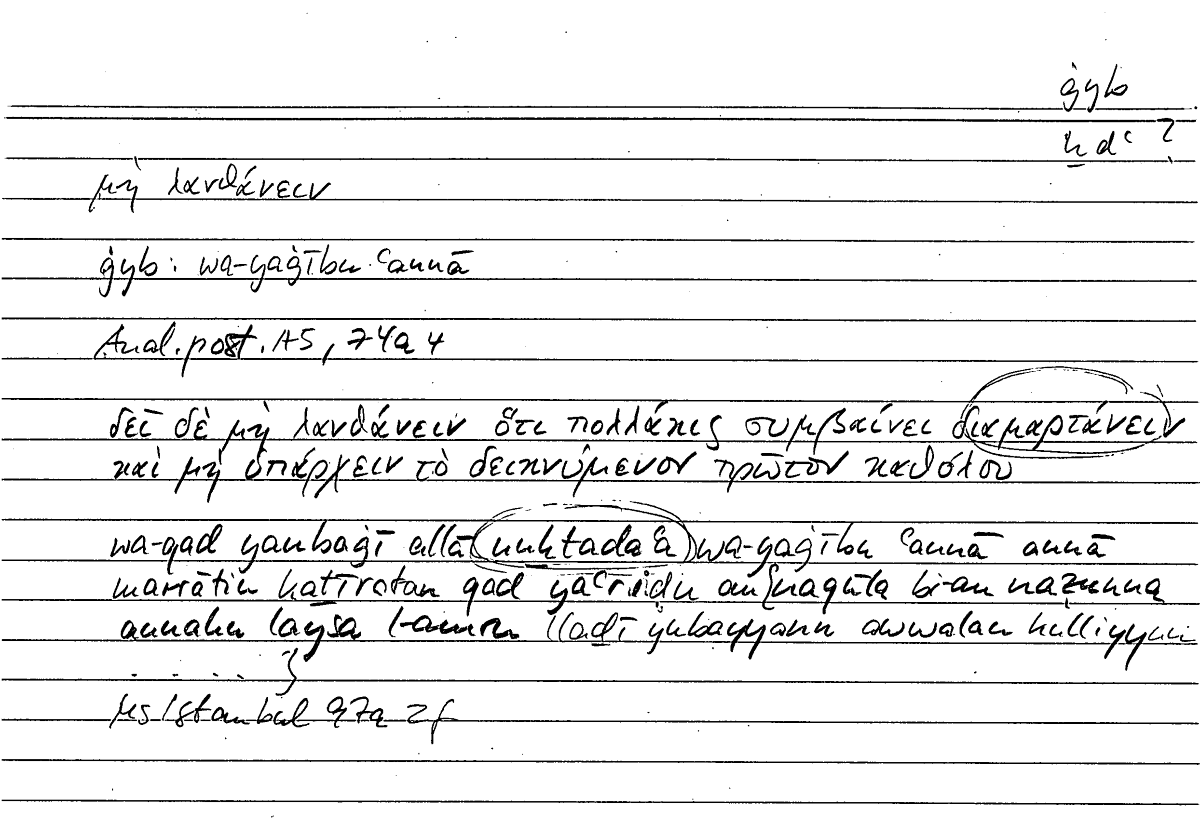 ġyb
ḫdʿ ?
μὴ λανθάνειν
ġyb: wa-yaġību ʿannā
Anal. post. A5, 74a4
δεῖ δὲ μὴ λανθάνειν ὅτι πολλάκις συμβαίνει διαμαρτάνειν
καὶ μὴ ὑπάρχειν τὸ δεικνύμενον πρῶτον καθόλου
wa-qad yanbaġī allā nuḫtadaʿa wa-yaġību ʿannā annā
marrātin kaṯīratan qad yaʿriḍu an naġlaṭa bi-an naẓunna
annahu laysa l-amru llaḏī yubayyanu awwalan kulliyyun
. . . . . .
Ms Istanbul 97a 2f